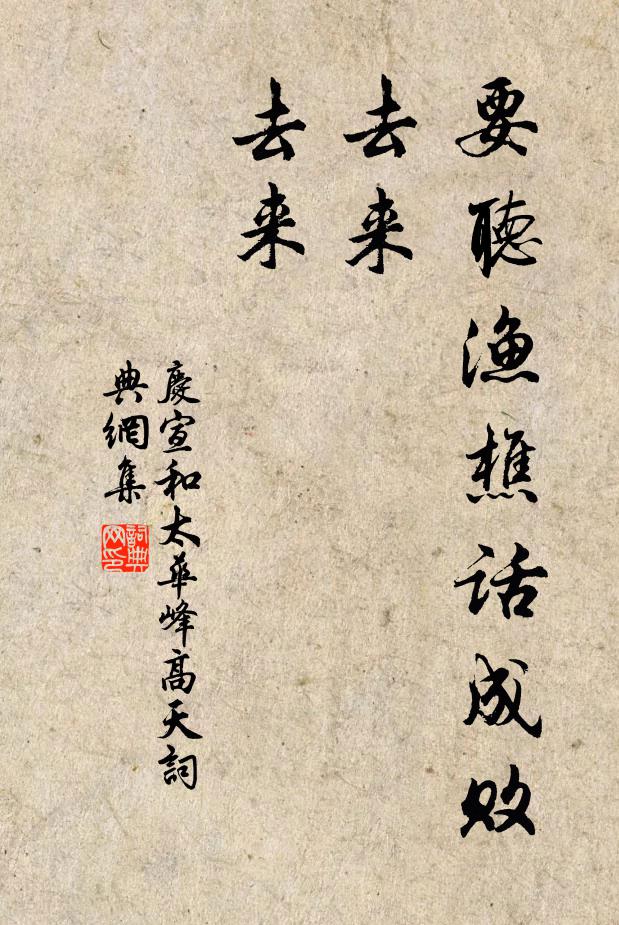 要聽漁樵話成敗
去来
去来
慶宣和太華峰高天詞
典網集
詞典
网印